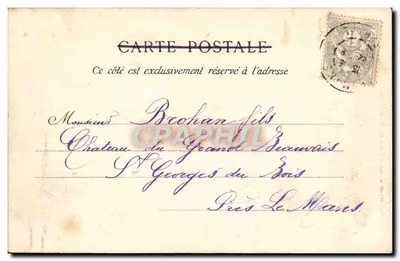 CARTE POSTALE
Ce côté est exclusivement réservé à l'adresse
Monsieur Brohan fils
CPARAMA
Chateau du Grand Beauvais
St Georges du Bois
Près Le Mans